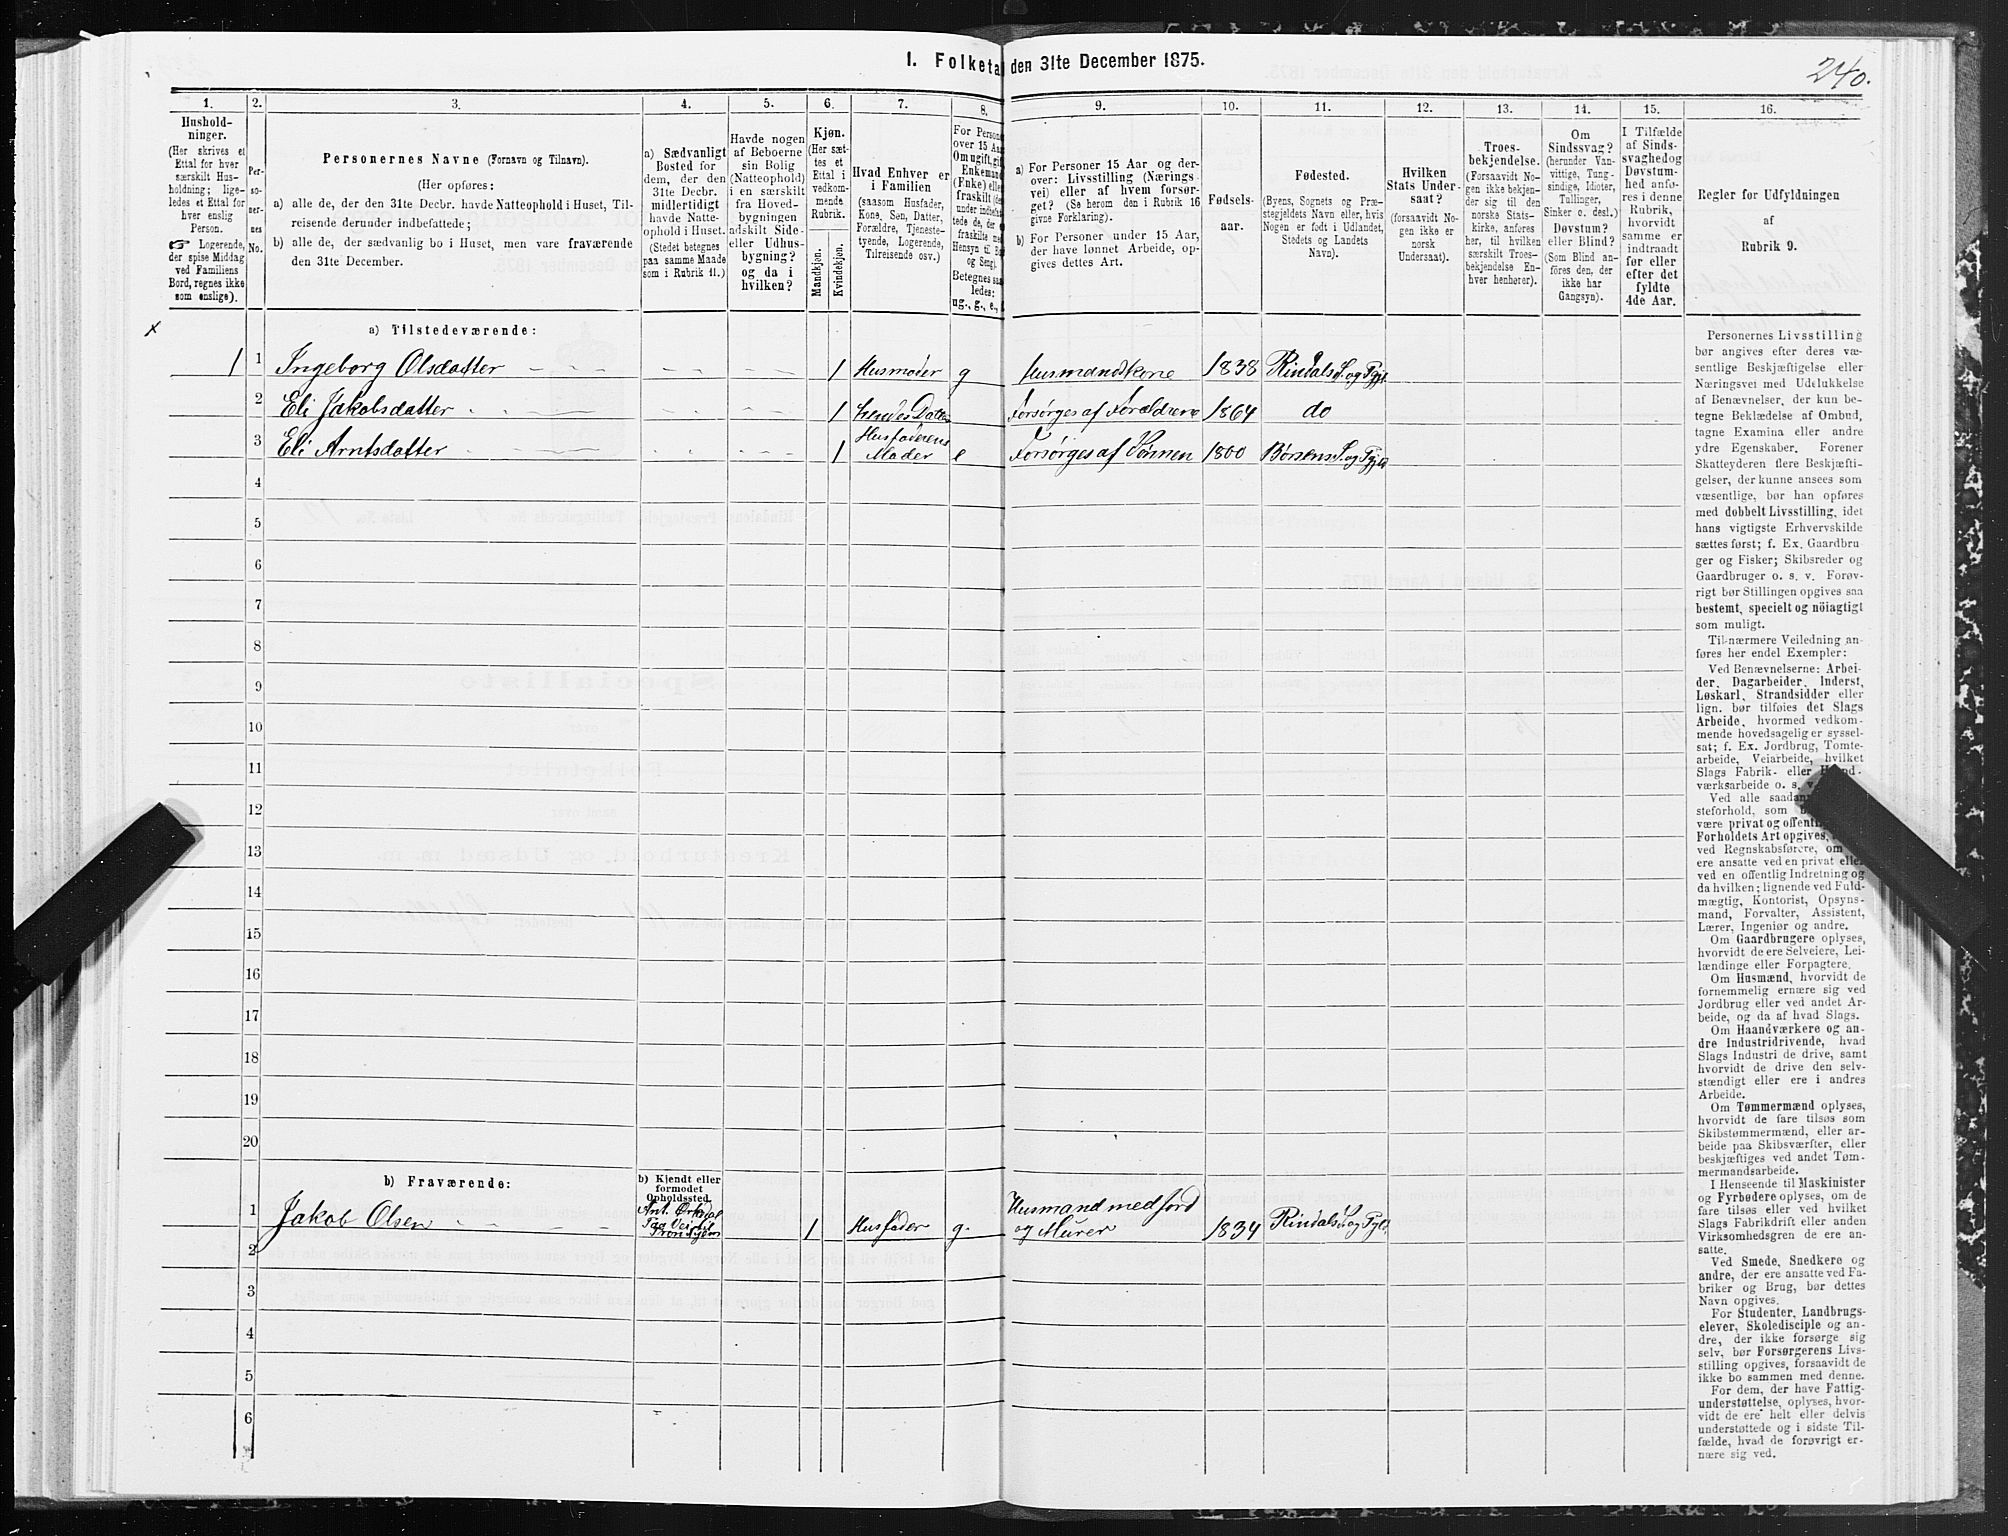 1. Folketal den 31te December 1875.
240.
1.
2.
3.
4.
5.
6.
7.
8.
9.
10.
11.
12.
13.
14.
15.
16.
Hushold-
ninger.
(Her skrives et
Ettal for hver
særskilt Hus-
holdning; lige-
ledes et Ettal for
hver enslig
Person.
☞ Logerende,
der spise Middag
ved Familiens
Bord, regnes ikke
som enslige).
Per-
so-
ner-
nes
No.
Personernes Navne (Fornavn og Tilnavn).
(Her opføres:
a) alle de, der den 31te Decbr. havde Natteophold i Huset, Til-
reisende derunder indbefattede;
b) alle de, der sædvanlig bo i Huset, men vare fraværende
den 31te December.
a) Sædvanligt
Bosted for
dem, der den
31te Decbr.
midlertidigt
havde Natte-
ophold i Huset.
(Stedet betegnes
paa samme Maade
som i Rubrik 11.)
Havde nogen
af Beboerne
sin Bolig
(Natteophold)
i en særskilt
fra Hoved-
bygningen
adskilt Side-
eller Udhus-
bygning?
og da i
hvilken?
Kjøn.
(Her sæt-
tes et
Ettal i
vedkom-
mende
Rubrik.
Mandkjøn.
Kvindekjøn.
Hvad Enhver er
i Familien
(saasom Husfader,
Kone, Søn, Datter,
Forældre, Tjeneste-
tyende, Logerende,
Tilreisende osv.)
For Persone
over 15 Aar
Om ugift, gif
Enkemand
(Enke) elle
fraskilt (de
under indbefat
tede de, der e
fraskilte me
Hensyn til B
og Seng).
Betegnes saa
ledes:
ug., g., e.,
a) For Personer 15 Aar og der-
over: Livsstilling (Nærings-
vei) eller af hvem forsør-
get? (Se herom den i Rubrik 16
givne Forklaring).
b) For Personer under 15 Aar,
der have lønnet Arbeide, op-
gives dettes Art.
Fødsels-
aar.
Fødested.
(Byens, Sognets og Præ-
stegjeldets Navn eller, hvis
Nogen er født i Udlandet,
Stedets og Landets
Navn).
Hvilken
Stats Under-
saat?
(forsaavidt No-
gen ikke er
norsk
Undersaat).
Troes-
bekjendelse.
(Forsaavidt No-
gen ikke bekjen-
der sig til den
norske Stats-
kirke, anføres
her, til hvilken
særskilt Troes-
bekjendelse En-
hver henhører).
Om
Sindssvag?
(herunder Van-
vittige, Tung-
sindige, Idioter,
Tullinger,
Sinker o. desl.)
Døvstum?
eller Blind?
(Som Blind an-
føres den, der
ikke har
Gangsyn).
I Tilfælde
af Sinds-
svaghed og
Døvstum-
hed anfø-
res i denne
Rubrik,
hvorvidt
samme er
indtraadt
før eller
efter det
fyldte
4de Aar.
Regler for Udfyldningen
af
Rubrik 9.
a) Tilstedeværende:
x
1 1 Ingeborg Olsdatter 1 Husmoder g Husmandskone 1838 Rindals S. og Pgjl.
2 Eli Jakobsdatter 1 hendes Datter Forsørges af Forældrene 1864 do
3 Eli Arntsdatter 1 Husfaderens
Moder e Forsørges af Sønnen 1800 Børsens S. og Pgjl
4
5
6
7
8
9
10
11
12
13
14
15
16
17
18
19
20
b) Fraværende:
b) Kjendt eller
formodet
Opholdssted.
1 Jakob Olsen Ant. Orkdal
Paa Vei til
Trondhjem 1 Husfader g. Husmand med Jord
og Murer 1834 Rindals S. og Pgld.
2
3
4
5
6
Personernes Livsstilling
bør angives efter deres væ-
sentlige Beskjæftigelse eller
Næringsvei med Udelukkelse
af Benævnelser, der kun be-
tegne Beklædelse af Ombud,
tagne Examina eller andre
ydre Egenskaber. Forener
Skatteyderen flere Beskjæfti-
gelser, der kunne ansees som
væsentlige, bør han opføres
med dobbelt Livsstilling, idet
hans vigtigste Erhvervskilde
sættes først; f. Ex. Gaardbru-
ger og Fisker; Skibsreder og
Gaardbruger o. s. v. Forøv-
rigt bør Stillingen opgives saa
bestemt, specielt og nöiagtigt
som muligt.
Til nærmere Veiledning an-
føres her endel Exempler:
Ved Benævnelserne: Arbei-
der, Dagarbeider, Inderst,
Løskarl, Strandsidder eller
lign. bør tilføies det Slags
Arbeide, hvormed vedkom-
mende hovedsagelig er syssel-
sat; f. Ex. Jordbrug, Tomte-
arbeide, Veiarbeide, hvilket
Slags Fabrik- eller Haand-
værksarbeide o. s. v.
Ved alle saadan
steforhold, som b
være privat og offentlig
Forholdets Art opgives,
ved Regnskabsførere, om
ere ansatte ved en privat eller
ved en offentlig Indretning og
da hvilken; lignende ved Fuld-
mægtig, Kontorist, Opsyns-
mand, Forvalter, Assistent,
Lærer, Ingeniør og andre.
Om Gaardbrugere oplyses,
hvorvidt de ere Selveiere, Lei-
lændinge eller Forpagtere.
Om Husmænd, hvorvidt de
fornemmelig ernære sig ved
Jordbrug eller ved andet Ar-
beide, og da af hvad Slags.
Om Haandværkere og an-
dre Industridrivende, hvad
Slags Industri de drive, samt
hvorvidt de drive den selv-
stændigt eller ere i andres
Arbeide.
Om Tømmermænd oplyses,
hvorvidt de fare tilsøs som
Skibstømmermænd, eller ar-
beide paa Skibsværfter, eller
beskjæftiges ved andet Tøm-
mermandsarbeide.
I Henseende til Maskinister
og Fyrbødere oplyses, om de
fare tilsøs eller ved hvilket
Slags Fabrikdrift eller anden
Virksomhedsgren de ere an-
satte.
Ved Smede, Snedkere og
andre, der ere ansatte ved Fa-
briker og Brug, bør dettes
Navn opgives.
For Studenter, Landbrugs-
elever, Skoledisciple og an-
dre, der ikke forsørge sig
selv, bør Forsørgerens Livs-
stilling opgives, forsaavidt de
ikke bo sammen med denne.
For dem, der have Fattig-
understøttelse, oplyses, hvor-
vidt de ere helt eller delvis
understøttede og i sidste Til-
fælde, hvad de forøvrigt er-
nære sig ved.